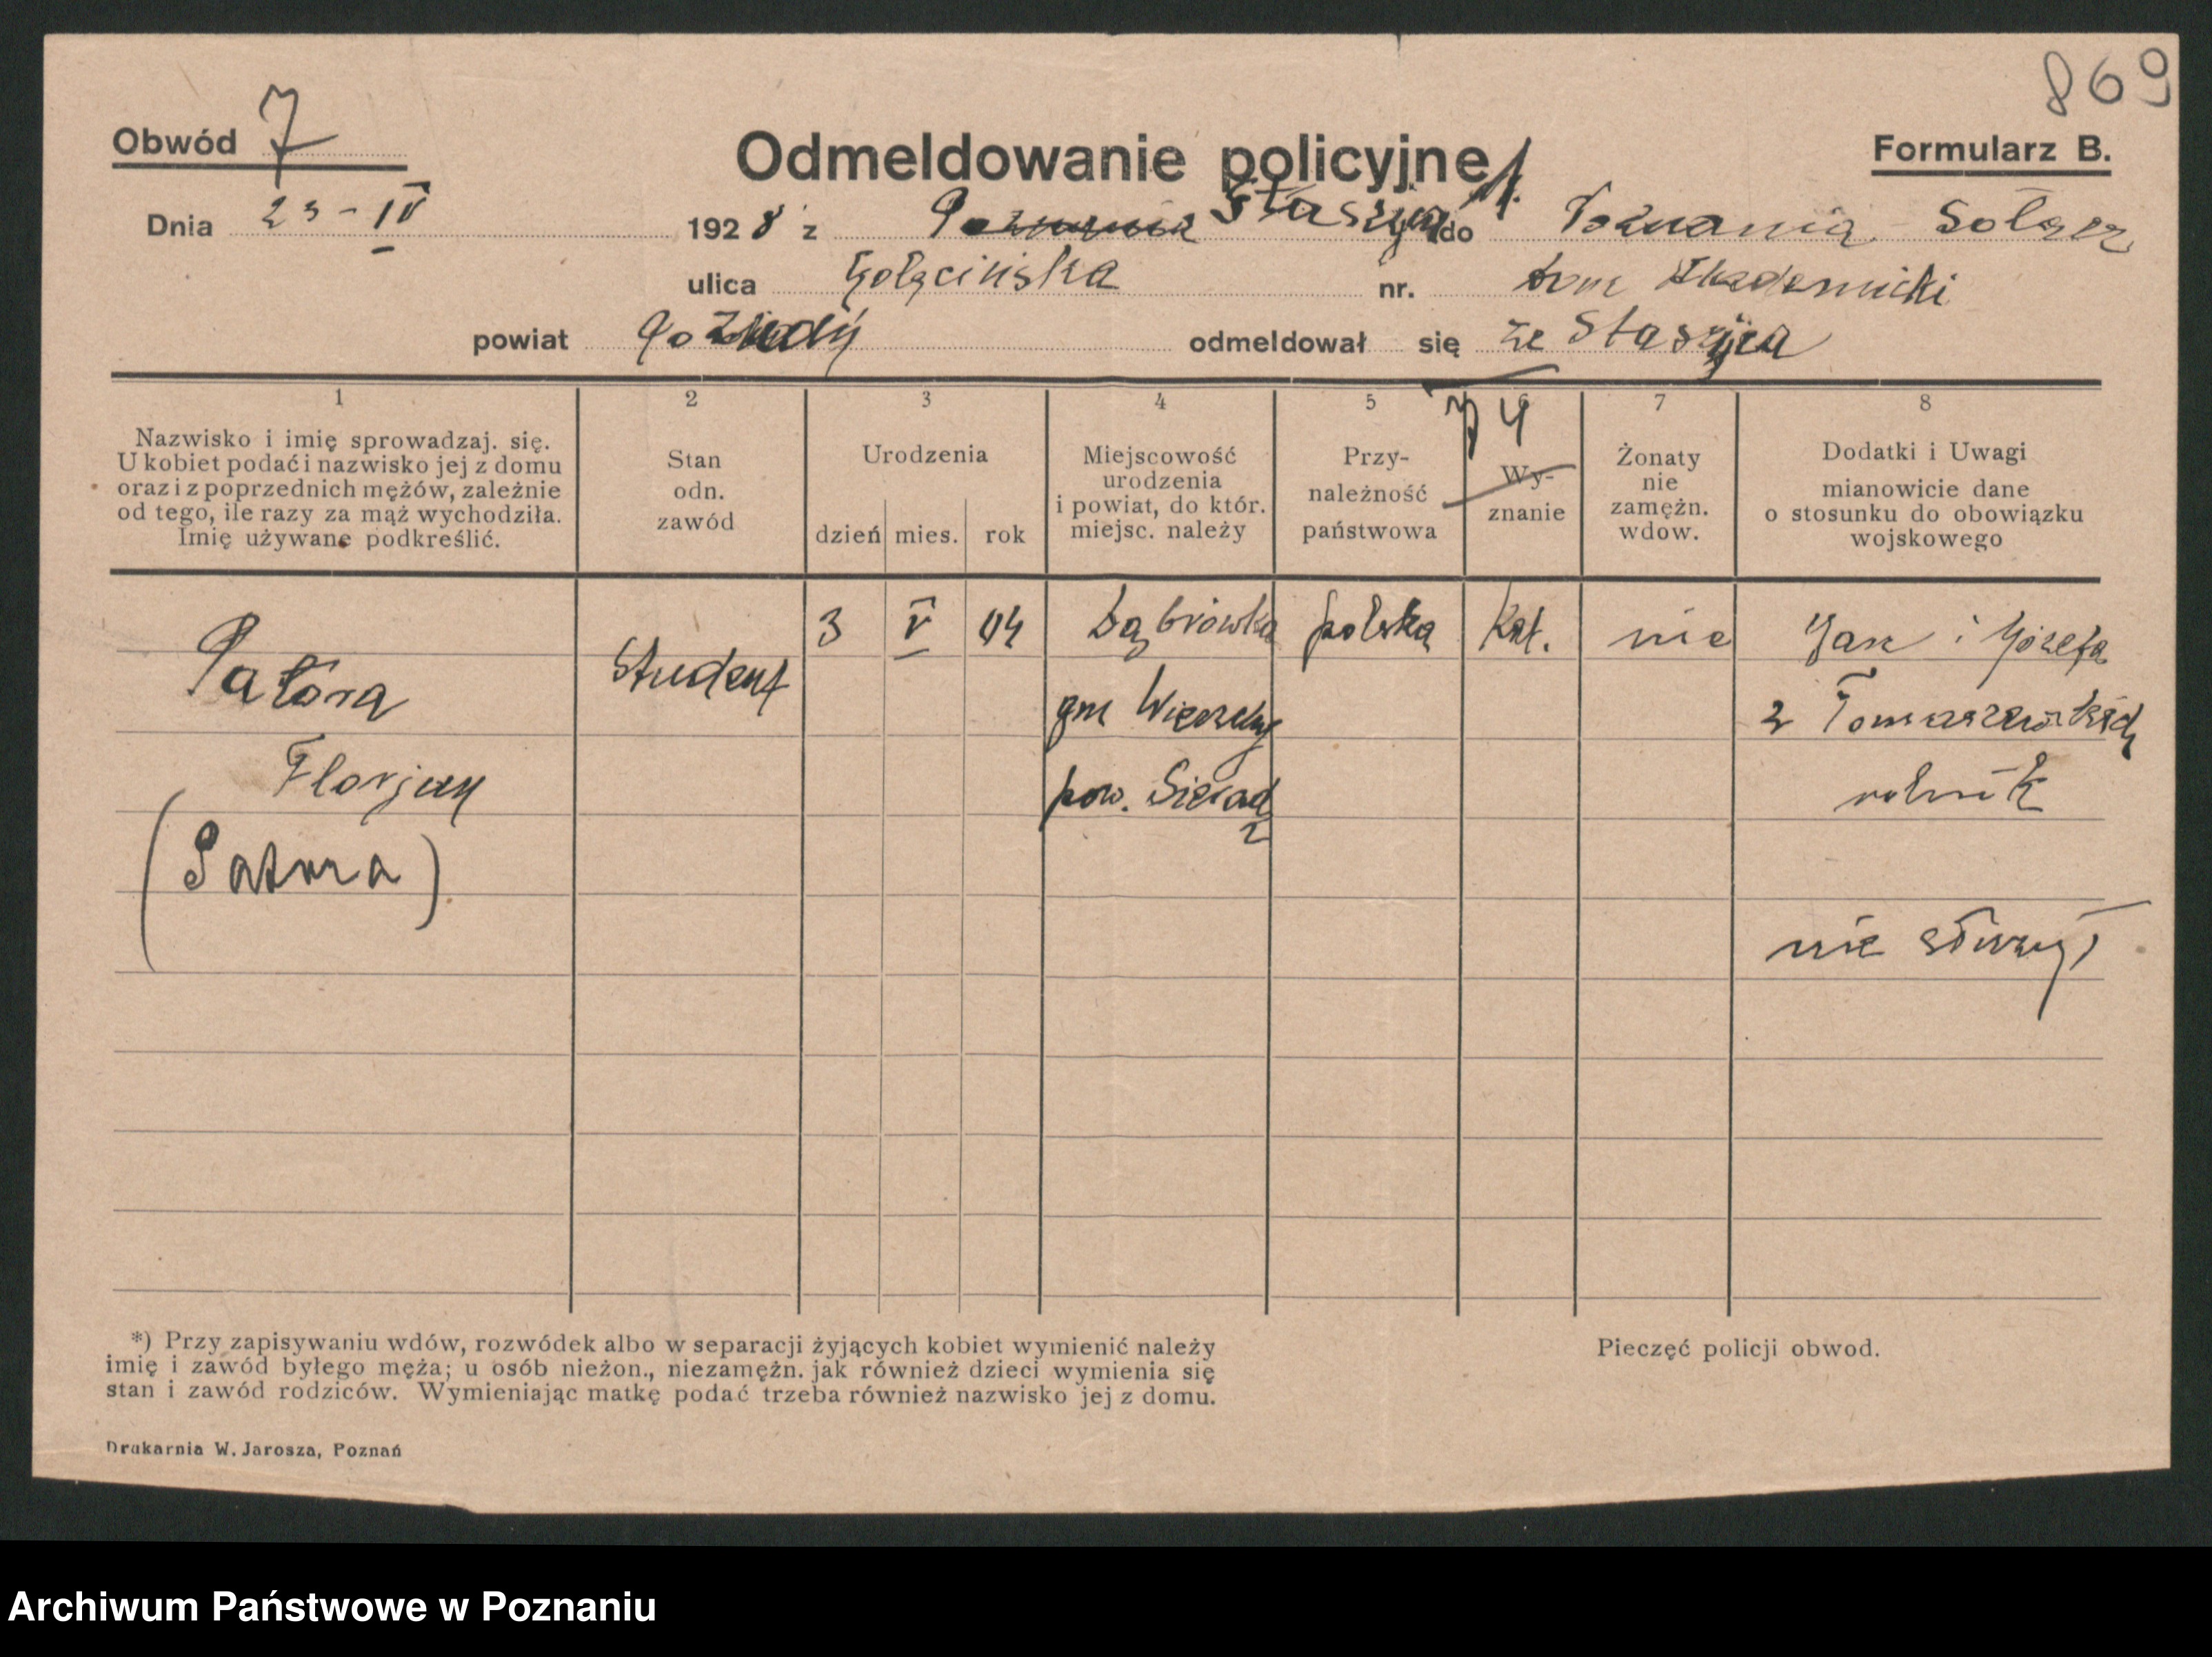 869
Obwód 7
Odmeldowanie policyjne
Formularz B.
Dnia 23-IV 1928 z Poznania Staszyca do Poznania Sołacz
ulica Gołęcińska nr. dom Akademicki
powiat Poznań odmeldował się ze Staszyca
74
1 2 3 4 5 6 7 8
Nazwisko i imię sprowadzaj. się.
U kobiet podać i nazwisko jej z domu
oraz i z poprzednich mężów, zależnie
od tego, ile razy za mąż wychodziła.
Imię używane podkreślić.
Stan
odn.
zawód
Urodzenia
dzień mies. rok
Miejscowość
urodzenia
i powiat, do któr.
miejsc. należy
Przy-
należność
państwowa
Wy-
znanie
Żonaty
nie
zamężn.
wdow.
Dodatki i Uwagi
mianowicie dane
o stosunku do obowiązku
wojskowego
Patóra
Florjan
(Patora)
Student
3 V 04
Dąbrówka
gm
pow. Sieradz
polska
kat.
nie
Jan i Józefa
z Tomaszewskich
rolnik
nie służył
*) Przy zapisywaniu wdów, rozwódek albo w separacji żyjących kobiet wymienić należy
imię i zawód byłego męża; u osób nieżon., niezamężn. jak również dzieci wymienia się
stan i zawód rodziców. Wymieniając matkę podać trzeba również nazwisko jej z domu.
Pieczęć policji obwod.
Drukarnia W. Jarosza, Poznań
Archiwum Państwowe w Poznaniu